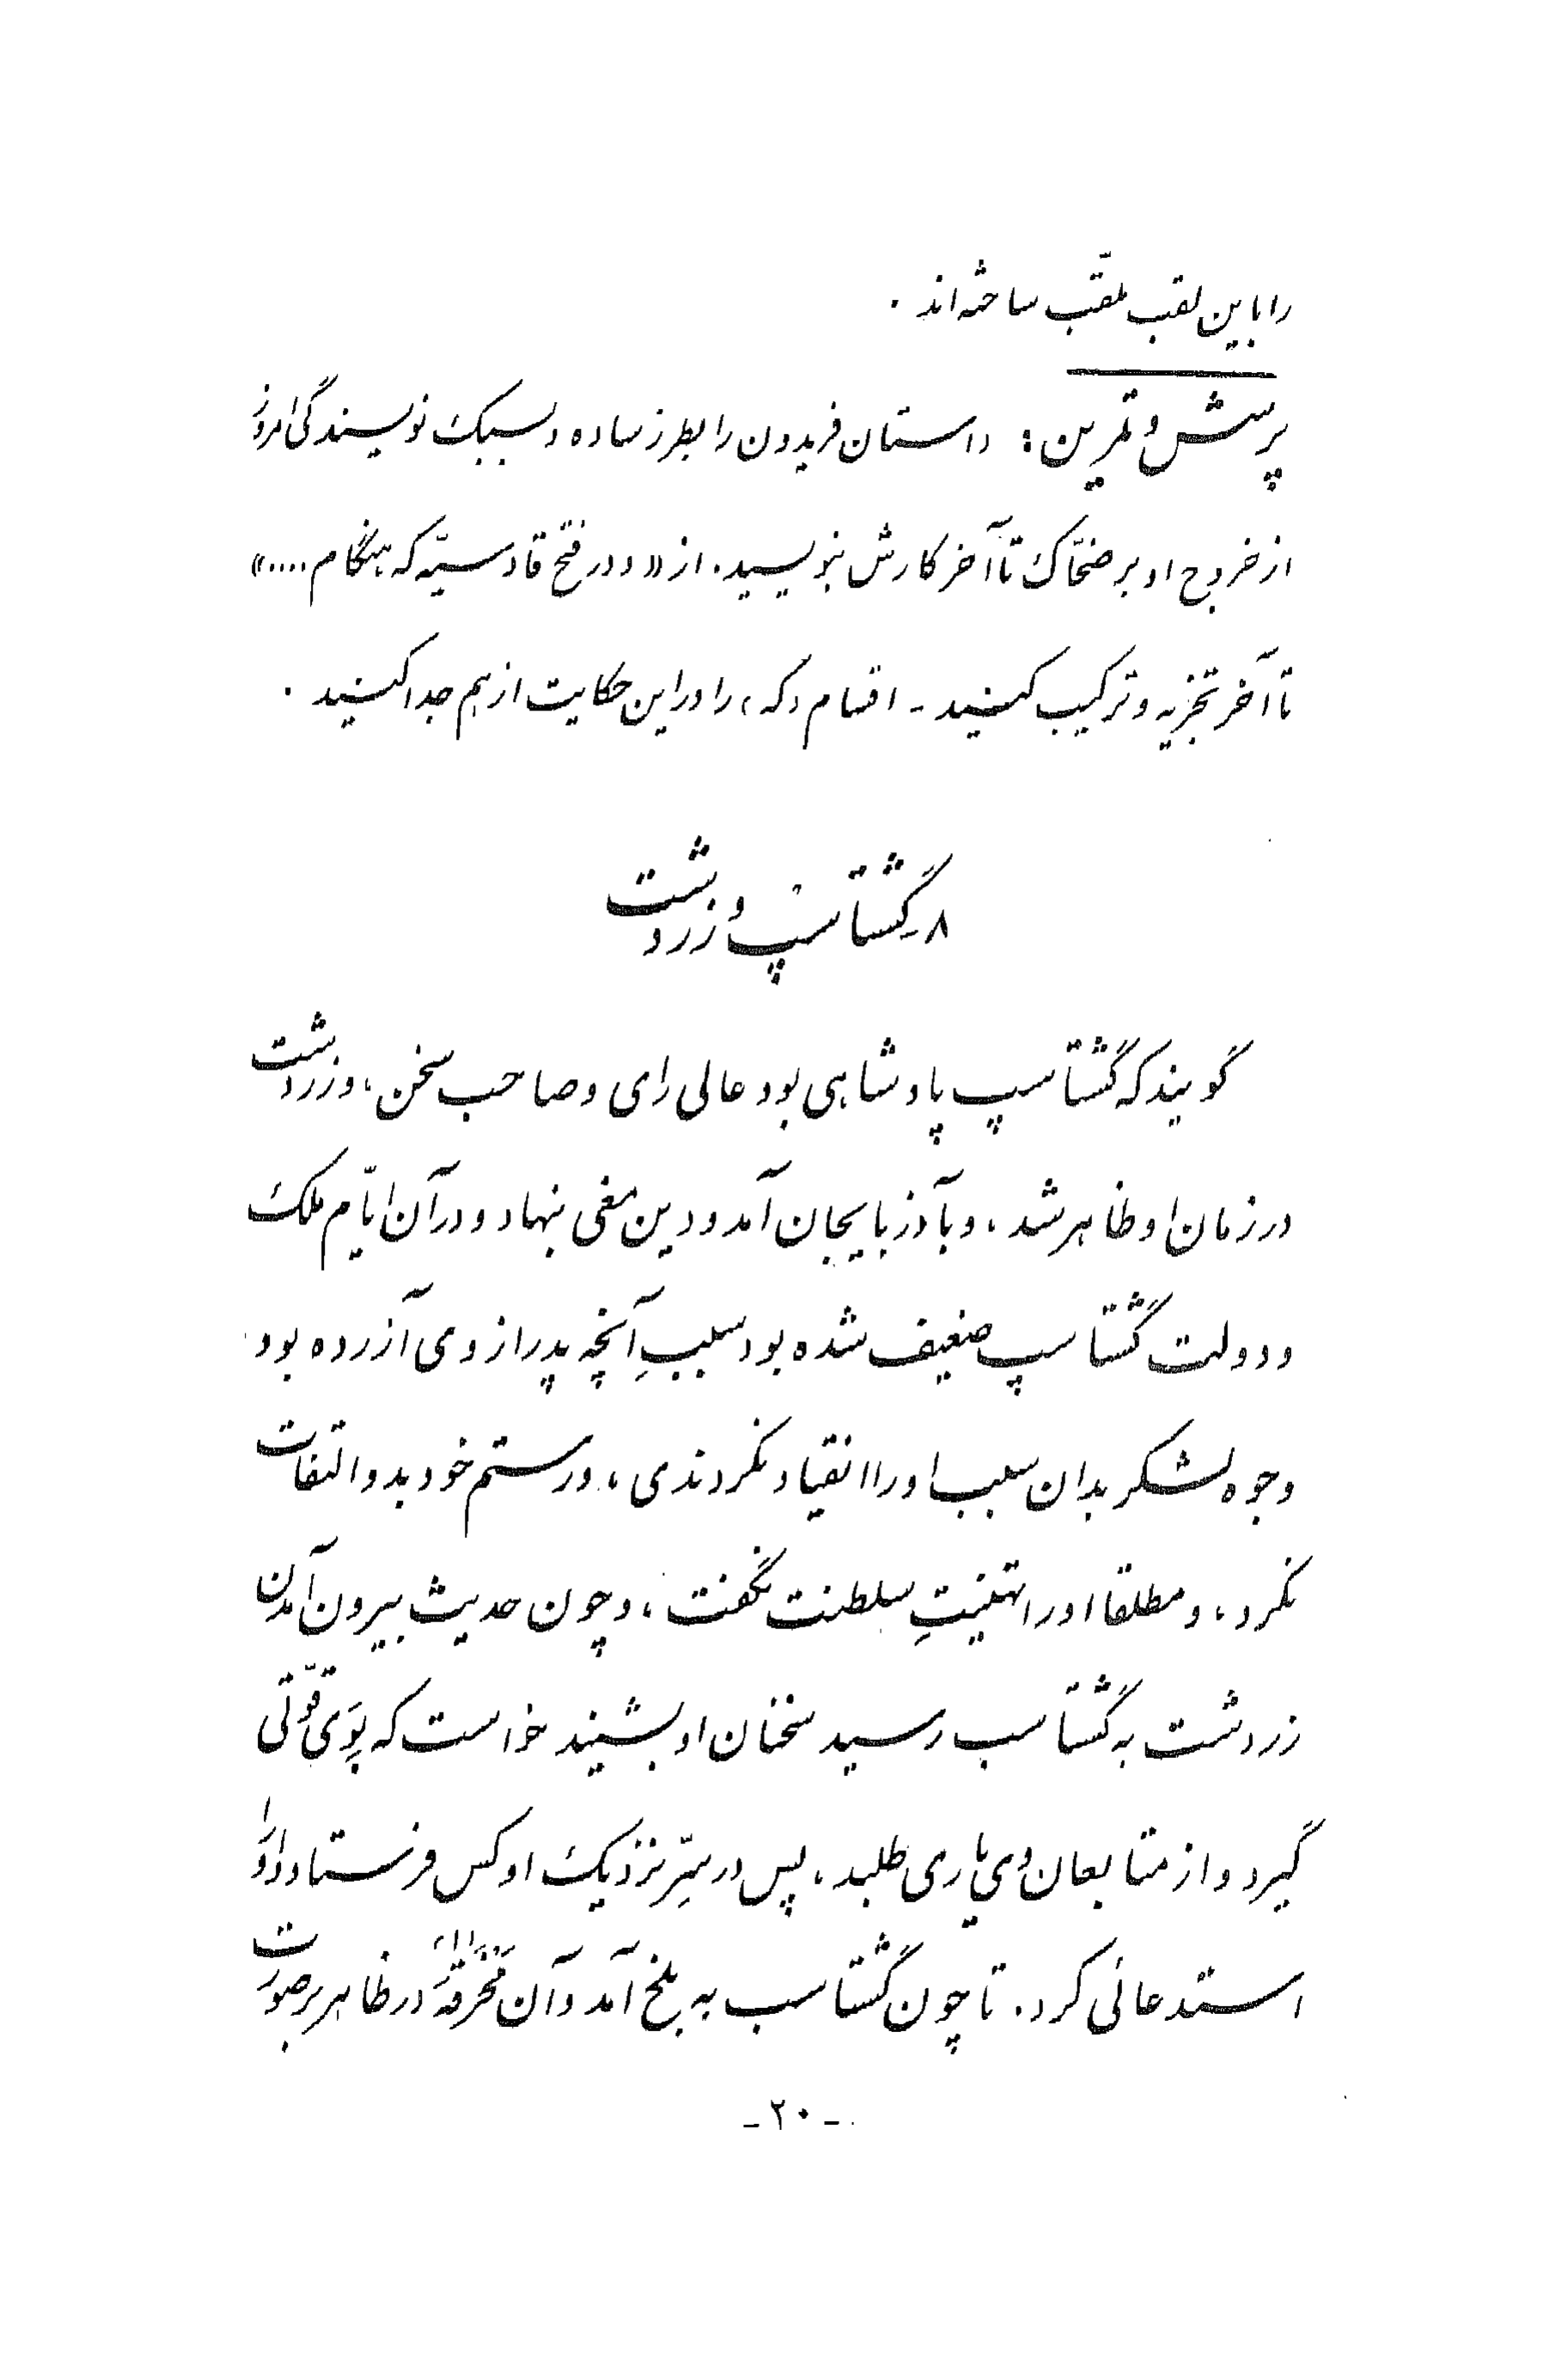 را باین لقب ملقّب ساخته‌اند .
پرسش و تمرین : داستان فریدون را بطرز ساده و بسبک نویسندگی امروز
از خروج او بر ضحّاک تا آخر کارش بنویسید . از «و در فتح قادسیّه که هنگام .....»
تا آخر تجزیه و ترکیب کنید - اقسام «که» را در این حکایت از هم جدا کنید .
۸- گشتاسپ و زردشت
گویند که گشتاسپ پادشاهی بود عالی رای و صاحب سخن ، و زردشت
در زمان او ظاهر شد ، و بآذربایجان آمد و دین مغی بنهاد و در آن ایّام ملک
و دولت گشتاسپ ضعیف شده بود بسببِ آنچه پدر از وی آزرده بود
وجوه لشکر بدان سبب او را انقیاد نکردندی ، و رستم خود بدو التفات
نکرد ، و مطلقا او را تهنیتِ سلطنت نگفت ، و چون حدیث بیرون آمدن
زردشت به گشتاسب رسید سخنان او بشنید خواست که بوَی قوّتی
گیرد و از متابعان وی یاری طلبد ، پس در سِرّ نزدیک او کس فرستاد و او را
استدعائی کرد . تا چون گشتاسب به بلخ آمد و آن مَخْرَقَهٔ در ظاهر بر صورت
- ۲۰ -